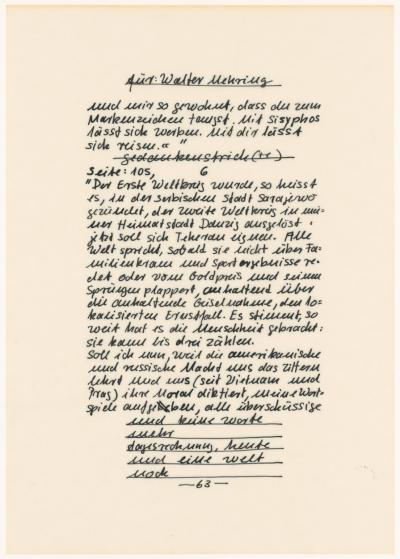 für: Walter Mehring
und mir so gewohnt, dass du zum
Markenzeichen taugst. Mit Sisyphos
lässt sich werben. Mit dir lässt
sich reisen.« "
gedankenstrich(r)
Seite: 105, 6
"Der Erste Weltkrieg wurde, so heisst
es, in der serbischen Stadt Sarajewo
gezündet, der zweite Weltkrieg in mei-
ner Heimatstadt Danzig ausgelöst.
jetzt soll sich Teheran eignen. Alle
Welt spricht, sobald sie nicht über Fa-
milienkram und Sportergebnisse re-
det oder vom Goldpreis und seinen
Sprüngen plappert, anhaltend über
die anhaltende Geiselnahme, den lo-
kalisierten Ernstfall. Es stimmt, so
weit hat es die Menschheit gebracht:
sie kann bis drei zählen.
Soll ich nun, weil die amerikanische
und russische Macht uns das Zittern
lehrt und uns (seit Vietnam und
Prag) ihre Moral diktiert, meine Wort-
spiele aufgeben, alle überschüssige
und keine worte
mehr
tagesrechnung, heute
und eine welt
noch
—63—